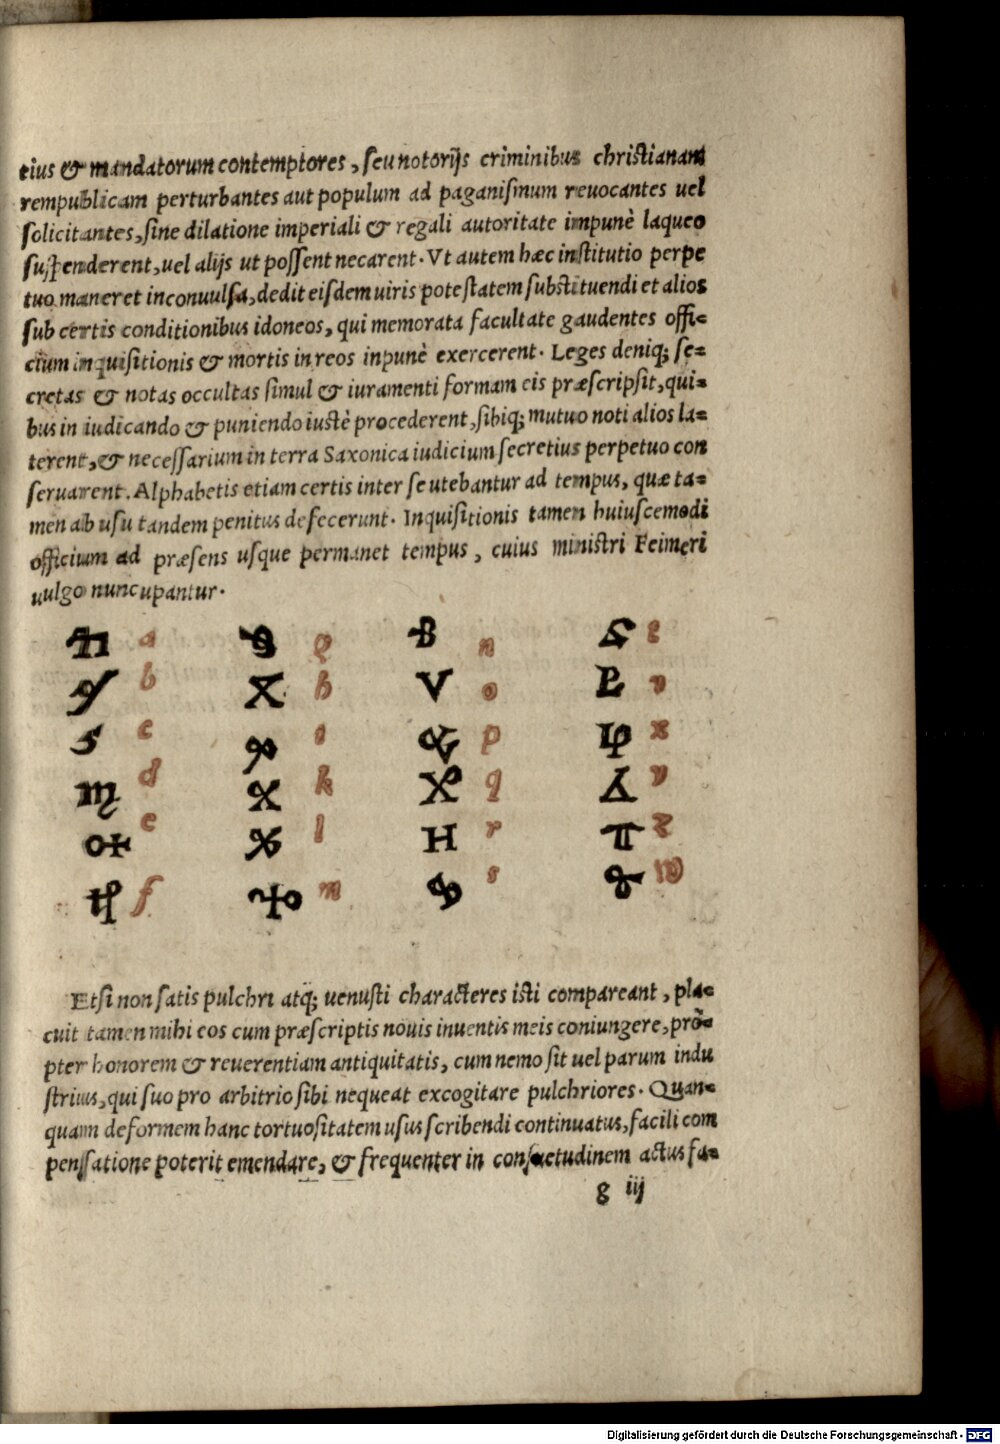 tius & mandatorum contemptores, seu notorijs criminibus christianam
rempublicam perturbantes aut populum ad paganismum reuocantes uel
solicitantes, sine dilatione imperiali & regali autoritate impunè laqueo
suspenderent, uel alijs ut possent necarent. Vt autem hæc institutio perpe
tuo maneret inconuulsa, dedit eisdem uiris potestatem substituendi et alios
sub certis conditionibus idoneos, qui memorata facultate gaudentes offi=
cium inquisitionis & mortis in reos inpunè exercerent. Leges deniq; se=
cretas & notas occultas simul & iuramenti formam eis præscripsit, qui=
bus in iudicando & puniendo iustè procederent, sibiq; mutuo noti alios la=
terent, & necessarium in terra Saxonica iudicium secretius perpetuo con
seruarent. Alphabetis etiam certis inter se utebantur ad tempus, quæ ta=
men ab usu tandem penitus defecerunt. Inquisitionis tamen huiuscemodi
officium ad præsens usque permanet tempus, cuius ministri Feimeri
uulgo nuncupantur.
a g n t
b h o v
c i p x
d k q y
e l r z
f m s w
Etsi non satis pulchri atq; uenusti characteres isti compareant, pla=
cuit tamen mihi eos cum præscriptis nouis inuentis meis coniungere, prō=
pter honorem & reuerentiam antiquitatis, cum nemo sit uel parum indu
strius, qui suo pro arbitrio sibi nequeat excogitare pulchriores. Quan=
quam deformem hanc tortuositatem usus scribendi continuatus, facili com
penssatione poterit emendare, & frequenter in consuetudinem actus fa=
g iij
Digitalisierung gefördert durch die Deutsche Forschungsgemeinschaft - DFG